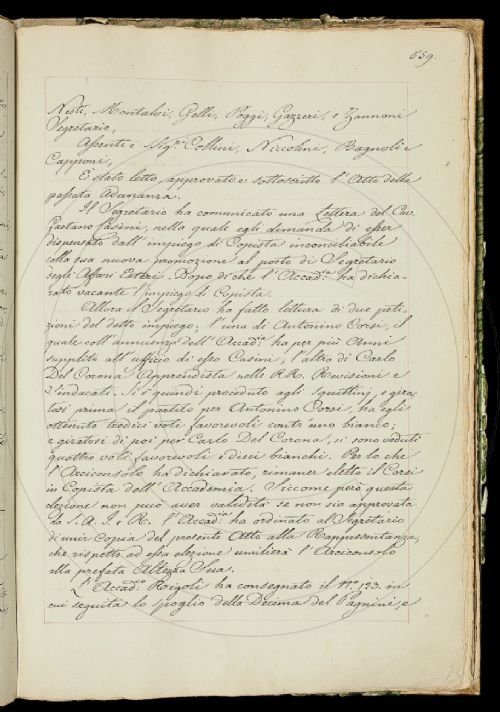 559.
Nesti, Montalvi, Gelli, Poggi, Gazzeri, e Zannoni
Segretario.
Assenti i Sig.ri Collini, Niccolini, Bagnoli e
Capponi.
È stato letto approvato e sottoscritto l'Atto della
passata Adunanza.
Il Segretario ha comunicato una Lettera del Cav.
Gaetano Casini, nella quale egli dimanda di esser
dispensato dall'impiego di Copista inconciliabile
colla sua nuova promozione al posto di Segretario
degli Affari Esteri. Dopo di che l'Accad.ia ha dichia-
rato vacante l'impiego di Copista.
Allora il Segretario ha fatto lettura di due peti-
zioni del detto impiego; l'una di Antonino Corsi, il
quale coll'annuenza dell'Accad.ia ha per più Anni
supplito all'uffizio di esso Casini, l'altra di Carlo
Del Corona Apprendista nelle RR. Revisioni e
Sindacati. Si è quindi proceduto agli squittinj, e gira-
tosi prima il partito per Antonino Corsi, ha egli
ottenuto tredici voti favorevoli contr'uno bianco;
e giratosi di poi per Carlo Del Corona, si sono veduti
quattro voti favorevoli e dieci bianchi. Per lo che
l'Arciconsolo ha dichiarato, rimaner eletto il Corsi
in Copista dell'Accademia. Siccome però questa
elezione non può aver validità se non sia approvata
da S. A. I. e R. l'Accad.ia ha ordinato al Segretario
di unir Copia del presente Atto alla Rappresentanza,
che rispetto ad essa elezione umilierà l'Arciconsolo
alla prefata Altezza Sua.
L'Accad.co Rigoli ha consegnato il N.o 123. in
cui seguita lo spoglio della Decima del Pagnini, e